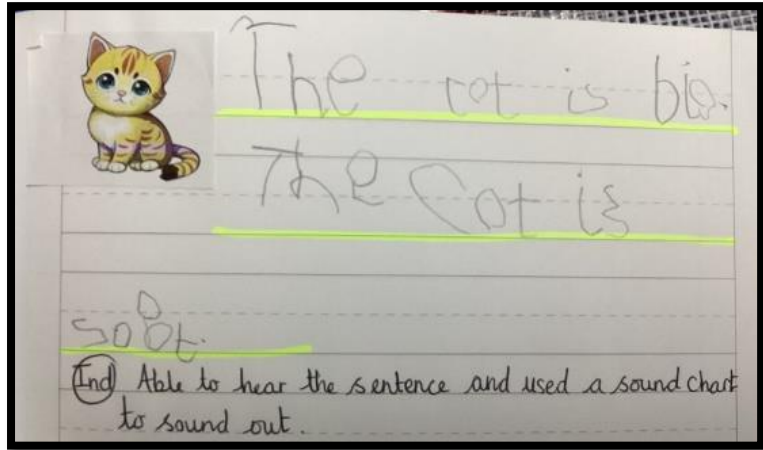 The cot is big.
The Cot is
soft.
(Ind) Able to hear the sentence and used a sound chart
to sound out.